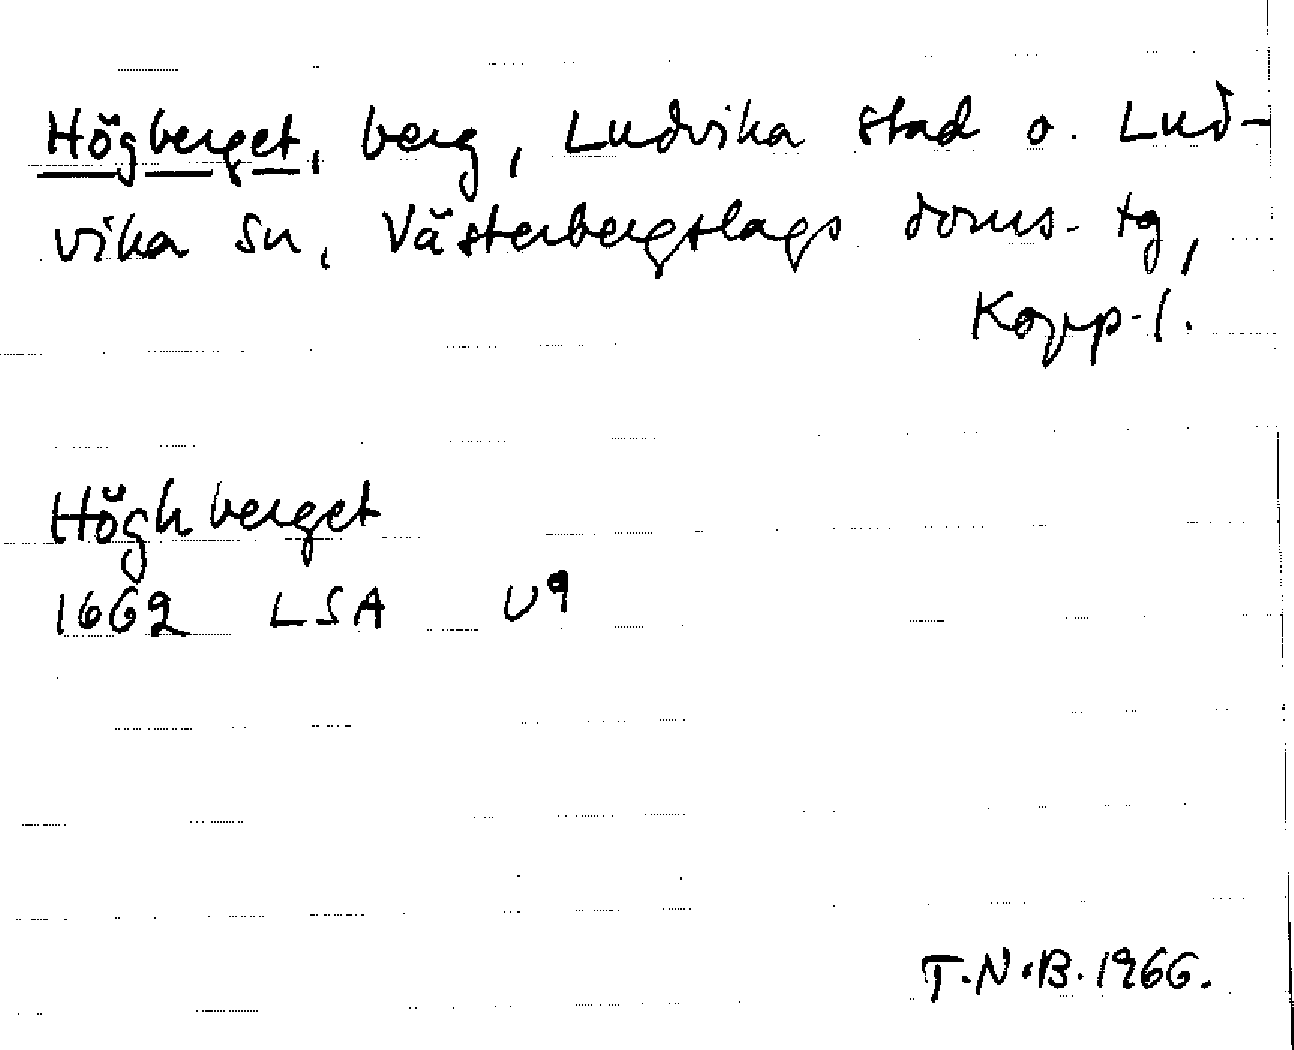 Högberget, berg, Ludvika stad o. Lud-
vika sn, Västerbergslags doms. tg,
Kopp. l.
Höghberget
1662 LSA U9
T.N.B. 1966.